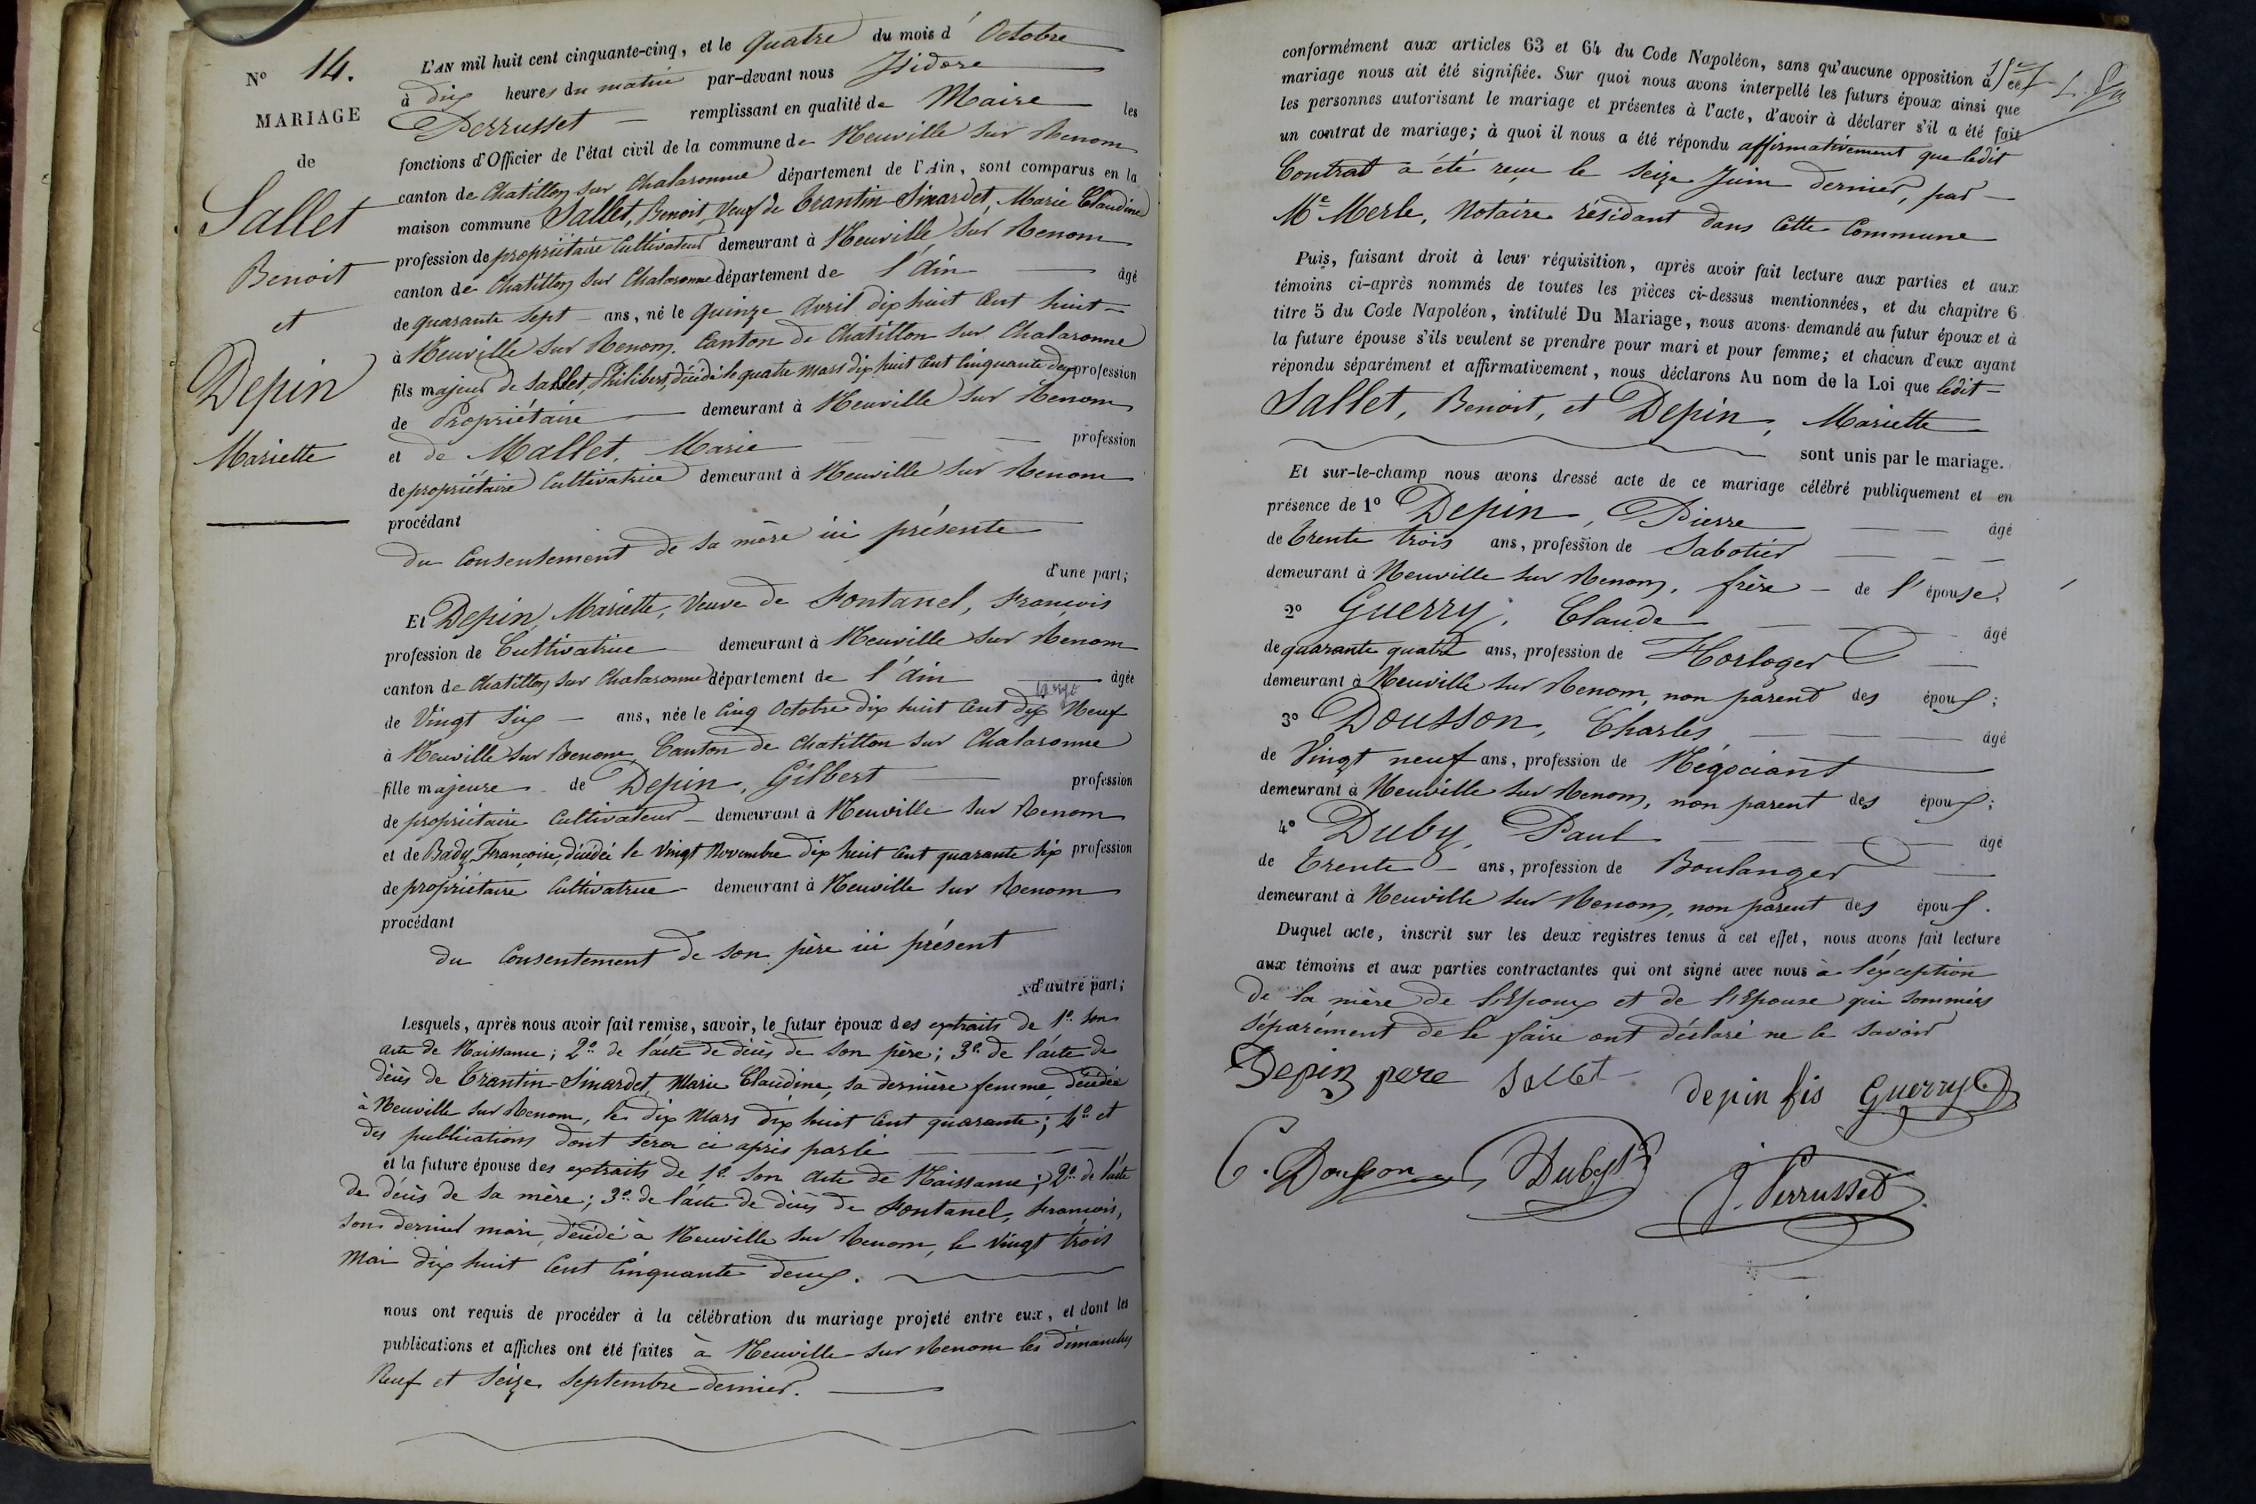 N° 14.
MARIAGE
de
Sallet
Benoit
et
Depin
Mariette
L'AN mil huit cent cinquante-cinq, et le quatre du mois d'Octobre
à dix heures du matin par-devant nous Isidore
Perrusset remplissant en qualité de Maire les
fonctions d'Officier de l'état civil de la commune de Neuville sur Renom
canton de Chatillon sur Chalaronne département de l'Ain, sont comparus en la
maison commune Sallet, Benoit, Veuf de Trantin-Sinardet, Marie Claudine
profession de propriétaire Cultivateur demeurant à Neuville sur Renom
canton de Chatillon sur Chalaronne département de l'Ain âgé
de quarante sept ans, né le quinze Avril dix huit Cent huit
à Neuville sur Renom, Canton de Chatillon sur Chalaronne
fils majeur de Sallet, Philibert, décédé le quatre Mars dix huit Cent Cinquante deux profession
de Propriétaire demeurant à Neuville sur Renom
et de Mallet, Marie profession
de propriétaire Cultivatrice demeurant à Neuville sur Renom
procédant
du Consentement de sa mère ici présente
d'une part;
Et Depin, Mariette, Veuve de Fontanel, François
profession de Cultivatrice demeurant à Neuville sur Renom
canton de Chatillon sur Chalaronne département de l'Ain âgée
de Vingt Six ans, née le Cinq Octobre dix huit Cent dix Neuf
à Neuville sur Renom, Canton de Chatillon sur Chalaronne
fille majeure de Depin, Gilbert profession
de propriétaire Cultivateur demeurant à Neuville sur Renom
et de Bady, Françoise, décédée le Vingt Novembre dix huit Cent quarante six profession
de propriétaire Cultivatrice demeurant à Neuville sur Renom
procédant
du Consentement de son père ici présent
d'autre part;
Lesquels, après nous avoir fait remise, savoir, le futur époux des extraits de 1° Son
Acte de Naissance; 2° de l'acte de décès de Son père; 3° de l'acte de
décès de Trantin-Sinardet Marie Claudine, sa dernière femme, décédée
à Neuville sur Renom, le dix Mars dix huit Cent quarante; 4° et
des publications dont sera ci après parlé
et la future épouse des extraits de 1° Son Acte de Naissance; 2° de l'acte
de décès de Sa mère; 3° de l'acte de décès de Fontanel, François,
Son dernier mari, décédé à Neuville sur Renom, le Vingt trois
Mai dix huit Cent Cinquante deux.
nous ont requis de procéder à la célébration du mariage projeté entre eux, et dont les
publications et affiches ont été faites à Neuville sur Renom les dimanches
Neuf et Seize Septembre dernier.
conformément aux articles 63 et 64 du Code Napoléon, sans qu'aucune opposition à ce
mariage nous ait été signifiée. Sur quoi nous avons interpellé les futurs époux ainsi que
les personnes autorisant le mariage et présentes à l'acte, d'avoir à déclarer s'il a été fait
un contrat de mariage; à quoi il nous a été répondu affirmativement que ledit
Contrat a été reçu le Seize Juin dernier, par
Me Merle, Notaire résidant dans Cette Commune
Puis, faisant droit à leur réquisition, après avoir fait lecture aux parties et aux
témoins ci-après nommés de toutes les pièces ci-dessus mentionnées, et du chapitre 6
titre 5 du Code Napoléon, intitulé Du Mariage, nous avons demandé au futur époux et à
la future épouse s'ils veulent se prendre pour mari et pour femme; et chacun d'eux ayant
répondu séparément et affirmativement, nous déclarons Au nom de la Loi que ledit
Sallet, Benoit, et Depin, Mariette
sont unis par le mariage.
Et sur-le-champ nous avons dressé acte de ce mariage célébré publiquement et en
présence de 1° Depin, Pierre âgé
de Trente trois ans, profession de Sabotier
demeurant à Neuville sur Renom, frère de l'épouse;
2° Guerry, Claude âgé
de quarante quatre ans, profession de Horloger
demeurant à Neuville sur Renom, non parent des époux;
3° Dousson, Charles âgé
de Vingt neuf ans, profession de Négociant
demeurant à Neuville sur Renom, non parent des époux;
4° Duby, Paul âgé
de Trente ans, profession de Boulanger
demeurant à Neuville sur Renom, non parent des époux.
Duquel acte, inscrit sur les deux registres tenus à cet effet, nous avons fait lecture
aux témoins et aux parties contractantes qui ont signé avec nous à l'éxception
de la mère de l'Epoux et de l'Epouse qui sommées
séparément de le faire ont déclaré ne le savoir
Depin pere Sallet depin fis Guerry
C. Dousson Duby J. Perrusset